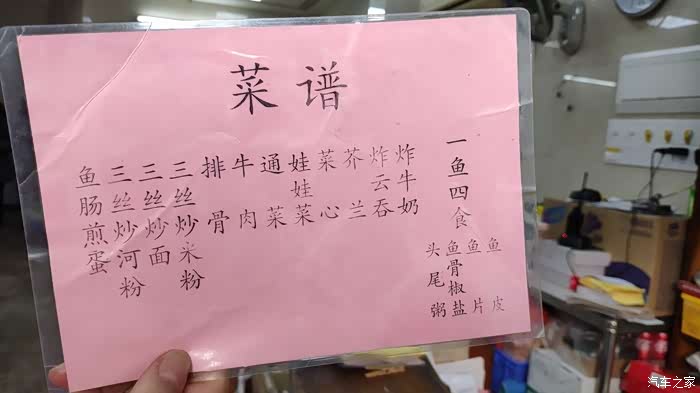 菜谱
一鱼四食
鱼皮
鱼片
鱼骨椒盐
头尾粥
炸牛奶
炸云吞
芥兰
菜心
娃娃菜
通菜
牛肉
排骨
三丝炒米粉
三丝炒面
三丝炒河粉
鱼肠煎蛋
汽车之家